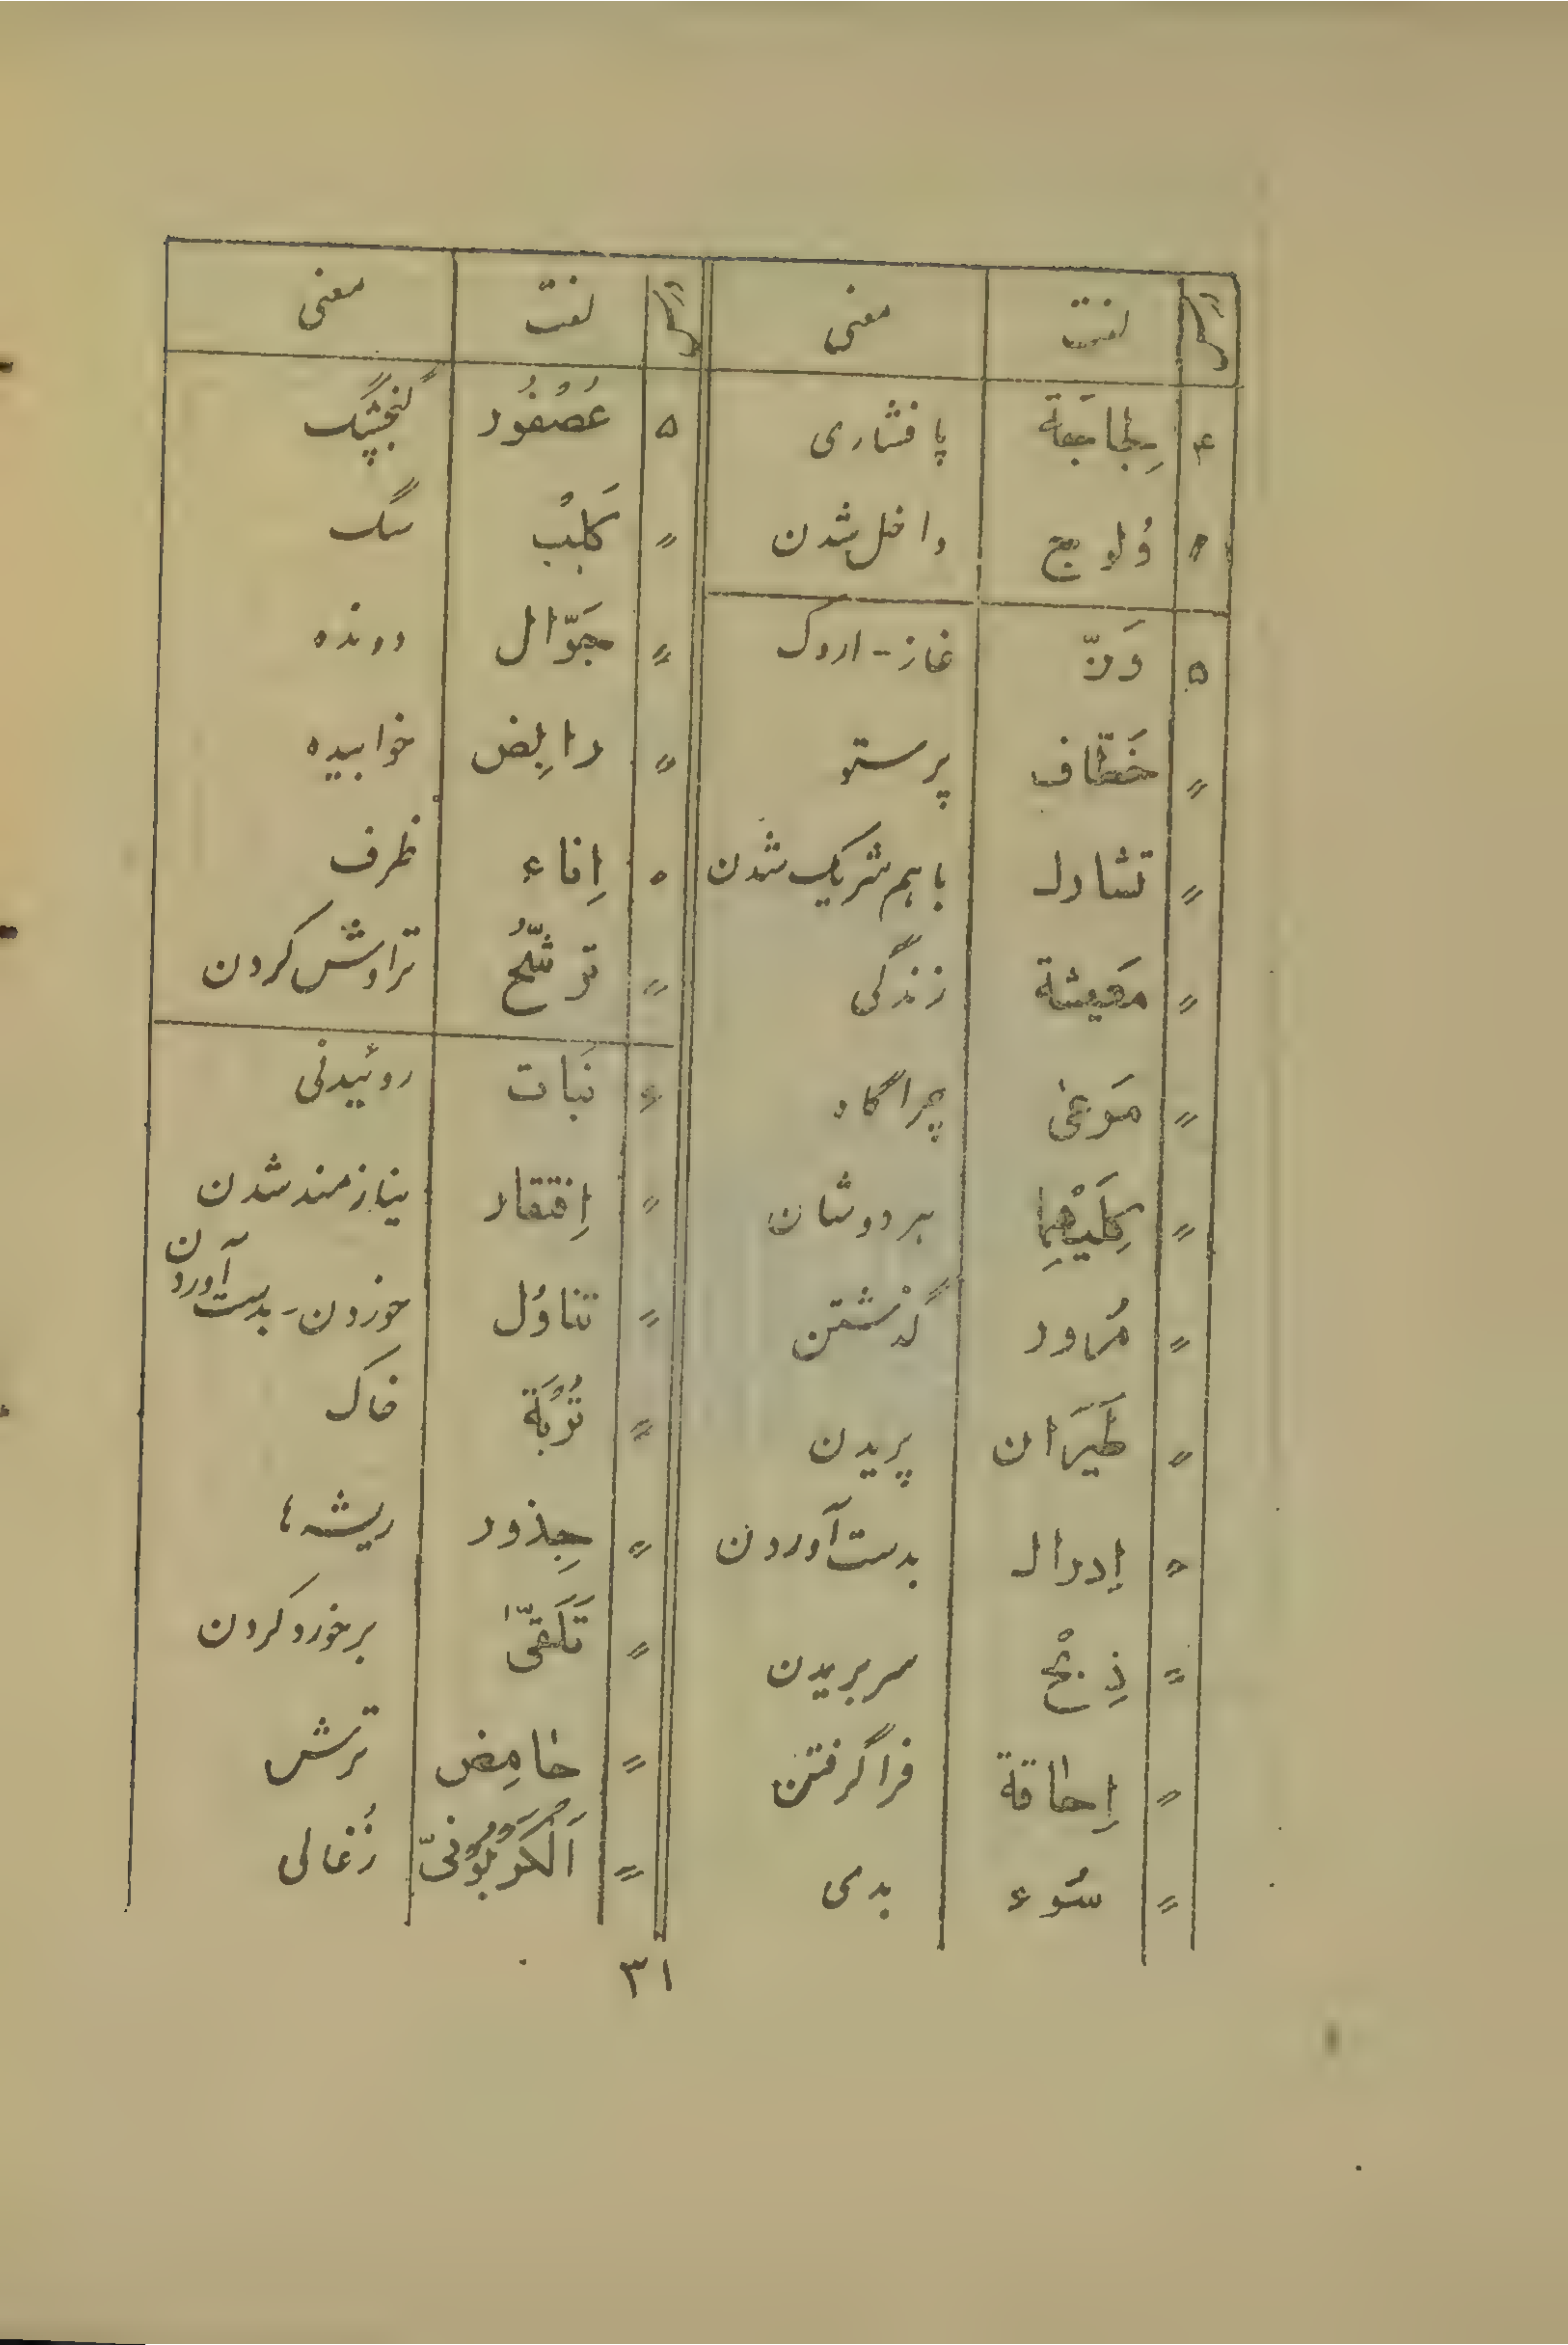 درس لغت معنی
۴ لِجاجَة پافشاری
〃 وُلوج داخل شدن
۵ وَزّ غاز - اردک
〃 خَطّاف پرستو
〃 تشارك باهم شریک شدن
〃 مَعیشة زندگی
〃 مَرعیٰ چراگاه
〃 کِلَیْهِما هردوشان
〃 مُرور گذشتن
〃 طَیَران پریدن
〃 إدراك بدست آوردن
〃 ذِبْح سر بریدن
〃 إحاقة فراگرفتن
〃 سُوء بدی
درس لغت معنی
۵ عُصْفُور گنجشگ
〃 کَلْب سگ
〃 جَوّال دونده
〃 رابِض خوابیده
〃 إناء ظرف
〃 ترشّحُ تراوش کردن
۶ نَبات روئیدنی
〃 إفتقار نیازمند شدن
〃 تناوُل خوردن - بدست آوردن
〃 تُرْبَة خاک
〃 جِذور ریشه‌ها
〃 تَلَقّیٰ برخورد کردن
〃 حامِض ترش
〃 اَلْکَرْبُوْنیّ زُغالی
۳۱